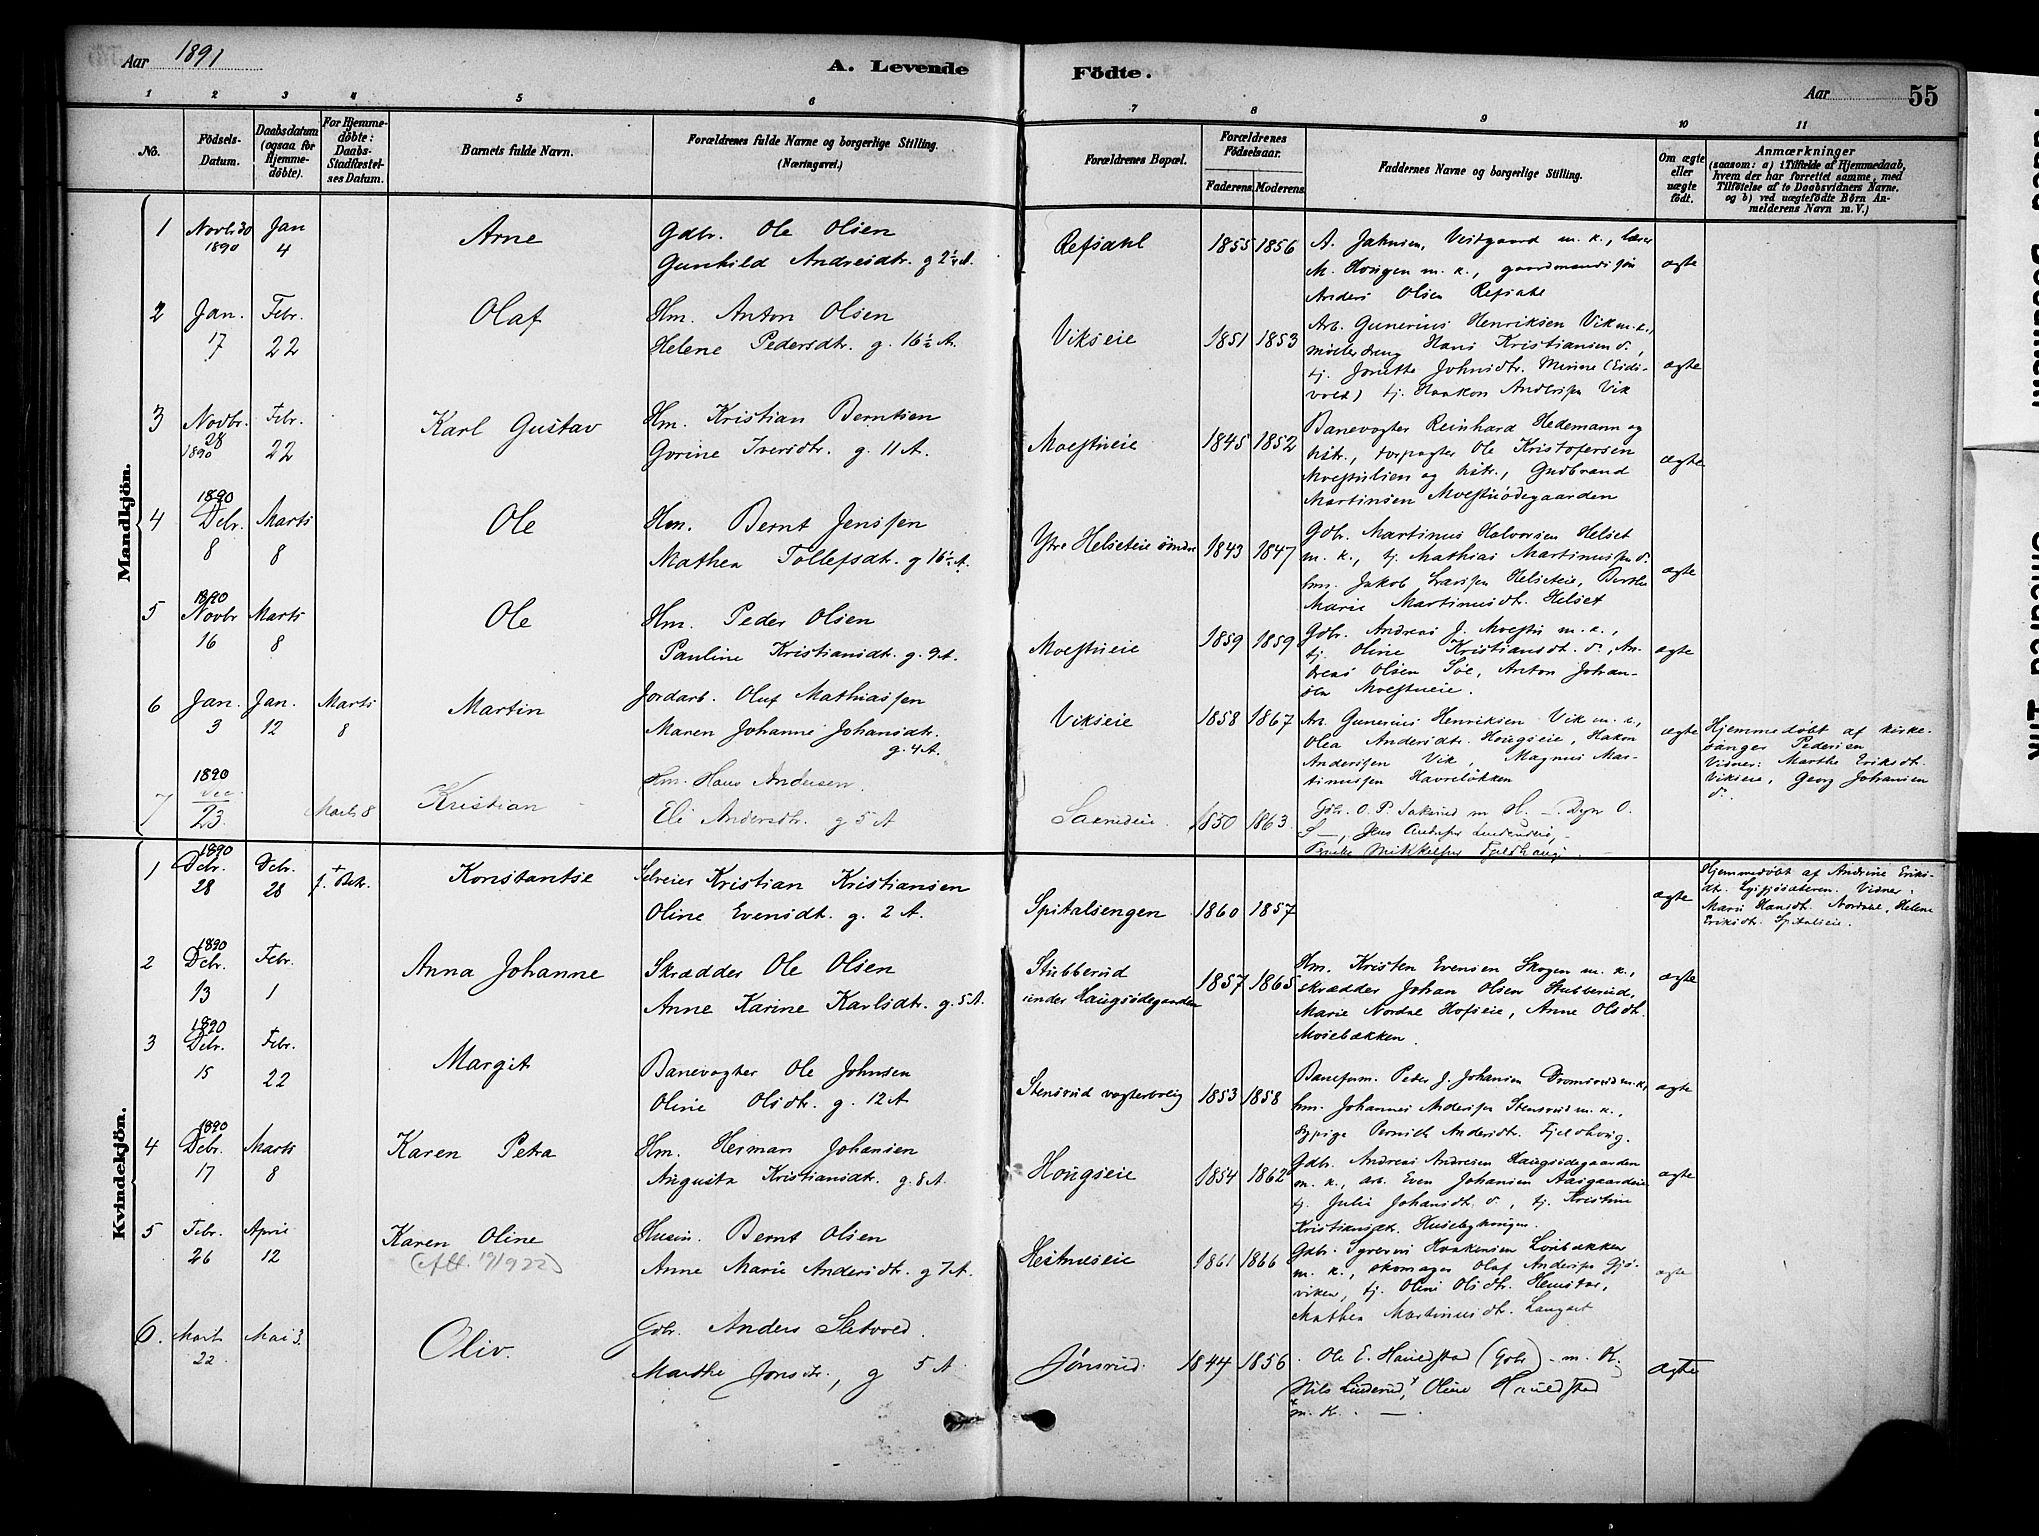 Aar 1891
A. Levende Födte.
Aar 55
1 2 3 4 5 6 7 8 9 10 11
No.
Födsels-Datum.
Daabsdatum (ogsaa for Hjemmedøbte).
For Hjemmedøbte: Daabs-Stadfæstelses Datum.
Barnets fulde Navn.
Forældrenes fulde Navne og borgerlige Stilling.
(Næringsvei.)
Forældrenes Bopæl.
Forældrenes Fødselsaar.
Faderens. Moderens.
Faddernes Navne og borgerlige Stilling.
Om ægte eller uægte født.
Anmærkninger
(saasom: a) i Tilfælde af Hjemmedaab, hvem der har forrettet samme, med Tilføielse af to Daabsvidners Navne. og b) ved uægtefödte Börn Anmelderens Navn m. V.)
Mandkjön.
1 Novb. 30 1890 Jan 4 Arne
Gdbr. Ole Olsen
Gunhild Andreasdtr. g 2¼ A.
Refsahl 1855 1856
A. Jahnsen, Vestgaard m. k., lærer
M. Hougen m. k., gaardmandssøn
Anders Olsen Refsahl
ægte
2 Jan. 17 Febr. 22 Olaf
Hm. Anton Olsen
Helene Pedersdtr. g. 16½ A.
Vikseie 1851 1853
Arb. Gunerius Henriksen Vik m. k.,
møllerdreng Hans Kristiansen d.,
tj. Jonette Johnsdtr. Minne (Eids-
vold) tj. Haakon Anderssen Vik
ægte
3 Novbr. 28 1890 Febr. 22 Karl Gustav
Hm. Kristian Berntsen
Gorine Iversdtr. g. 11 A.
Moestueie 1845 1852
Banevogter Reinhard Hedemann og
hstr., forpagter Ole Kristofersen
Moestulien og hstr., Gudbrand
Martinsen Moestuødegaarden
ægte
4 1890 Debr. 8 Marts 8 Ole
Hm. Bernt Jenssen
Mathea Tollefsdtr. g 16½ A.
Ytre Helseteie søndre 1843 1847
Gdbr. Martinus Halvorsen Helset
m. k., tj. Mathias Martinussen d.
hm. Jakob Larssen Helseteie, Berthe
Marie Martinusdtr. Helset
ægte
5 1890 Novbr 16 Marts 8 Ole
Hm. Peder Olsen
Pauline Kristiansdtr. g. 9 A.
Moestueie 1859 1859
Gdbr. Andreas J. Moestu m. k.,
tj. Oline Kristiansdt. d., An-
dreas Olsen Søe, Anton Johan-
sen Moestueie.
ægte
6 Jan. 3 Jan. 12 Marts 8 Martin
Jordarb. Oluf Mathiassen
Maren Johanne Johansdtr.
g. 4 A.
Vikseie 1858 1867
Ar. Gunerius Henriksen Vik m. k.,
Olea Andersdtr. Hougseie, Hakon
Anderssen Vik, Magnus Mar-
tinussen Havreløkken
ægte
Hjemmedøbt af kirke-
sanger Pedersen
Vidner: Marthe Eriksdtr.
Vikseie, Georg Johansen
d.
7 1890 Dec. 23. Marts 8 Kristian
Hm. Hans Andersen.
Eli Andersdtr. g 5 A
1850 1863.
Kvindekjön.
1 1890 Debr. 28 Debr. 28 Konstantse
Selveier Kristian Kristiansen
Oline Evensdt. g. 2 A.
Spitalsengen 1860 1857
ægte
Hjemmedøbt af Andrine Eriks-
dt. Vidner:
Marie Hansdt. Nordahl, Helene
Eriksdt. Spitalseie.
2 1890 Debr. 13 Febr. 1 Anna Johanne
Skrædder Ole Olsen
Anne Karine Karlsdtr. g. 5 A.
Stubberud
under Haugsødegaarden 1857 1865
Hm. Kristen Evensen Skogen m. k.,
skrædder Johan Olsen Stubberud,
Marie Nordal Hofseie, Anne Olsdtr.
Mosebækken.
ægte
3 1890 Debr. 15 Febr. 22 Margit
Banevogter Ole Johnsen
Oline Olsdtr. g. 12 A
Stensrud vogterbolig 1853 1858
Baneform. Peder J. Johansen Dromsrud m. k.
hm. Johannes Anderssen Stensrud m. k.,
sypige Pernille Andersdtr. Fjeldhoug.
ægte
4 1890 Debr. 17 Marts 8 Karen Petra
Hm. Herman Johansen
Augusta Kristiansdtr. g. 8 A.
Hougseie 1854 1862
Gdbr. Andreas Andresen Haugsødegaarden
m. k., arb. Even Johansen Aasgaardeie
tj. Julie Johansdt. d., tj. Kristine
Kristiansdt.
ægte
5 Febr. 26 April 12 Karen Oline
(Att. 19/9 22)
Husm. Bernt Olsen
Anne Marie Andersdtr. g 7 A.
Hestnæseie 1861 1866
Gdbr. Syvers Haakensen Lönbækken
m. k., skomager Olaf Anderssen Gjø-
viken, tj. Oline Olsdtr.
Mathea Martinusdtr. Langset
ægte
6. Mart 22 Mai 3. Oliv.
Gdbr. Anders Sletvold.
Marthe Jonsdtr., g 5 A.
Jönsrud. 1844 1856
Ole E. Hauldstad (Gdbr) - m. K.
Nils Linderud, Oline Hauldstad
m. K.
Ægte